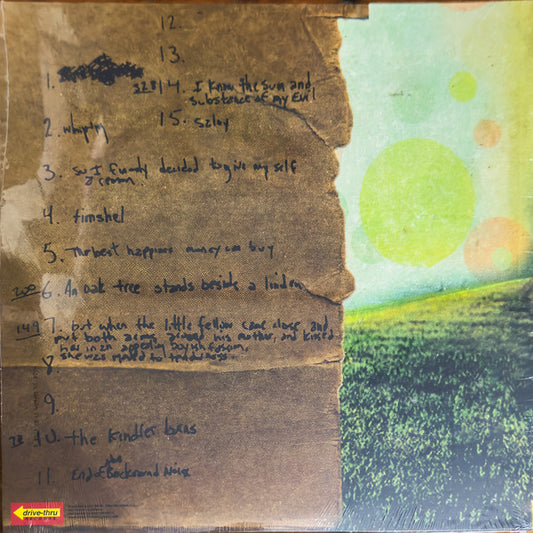 12.
13.
1.
S28 14. I know the sum and
substance of my Evil
2. whiptag
15. szlug
3. so I finally decided to give my self
a reason
4. timshel
5. The best happiness money can buy
200 6. An oak tree stands beside a linden
149 7. but when the little fellow came close and
put both arms around his mother, and kissed
her in an appealing boyish fashion,
she was moved to tenderness.
8.
9.
10. the kindler burns
11. End of the Background Noise
drive-thru
RECORDS